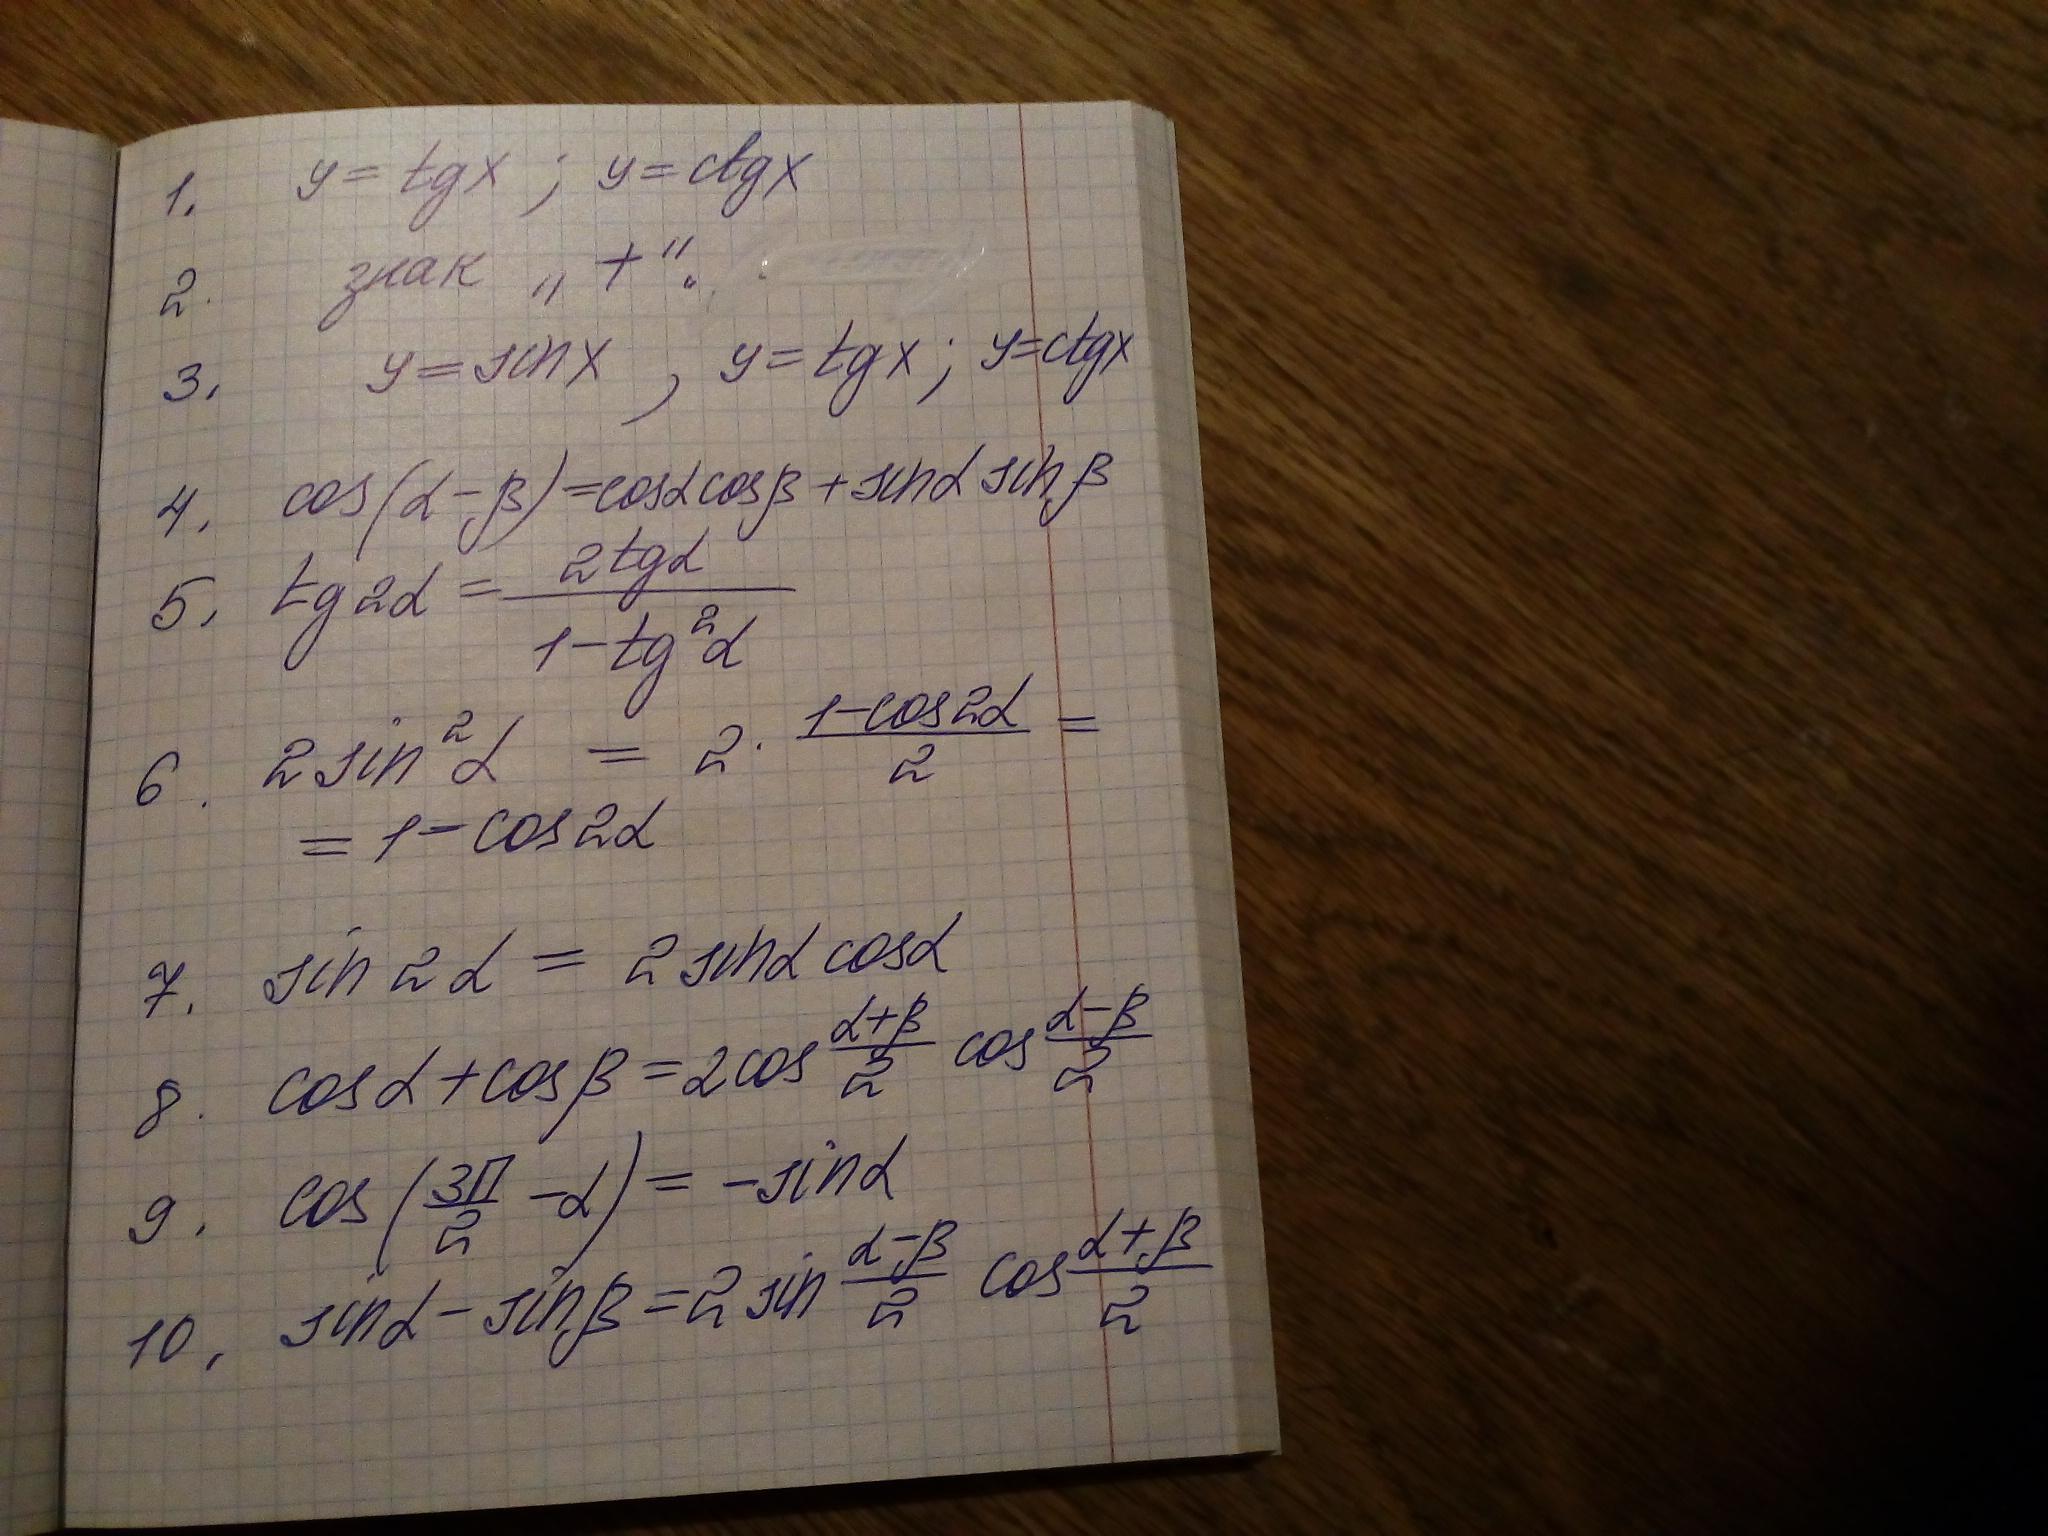 1. y = tgx ; y = ctgx
2. знак „ + “.
3. y = sinx , y = tgx ; y = ctgx
4. cos(α - β) = cosα cosβ + sinα sinβ
5. tg2α = \frac{2tgα}{1 - tg²α}
6. 2sin²α = 2 · \frac{1 - cos2α}{2} =
= 1 - cos2α
7. sin2α = 2sinα cosα
8. cosα + cosβ = 2cos\frac{α+β}{2} cos\frac{α-β}{2}
9. cos(\frac{3π}{2} - α) = -sinα
10. sinα - sinβ = 2sin\frac{α-β}{2} cos\frac{α+β}{2}